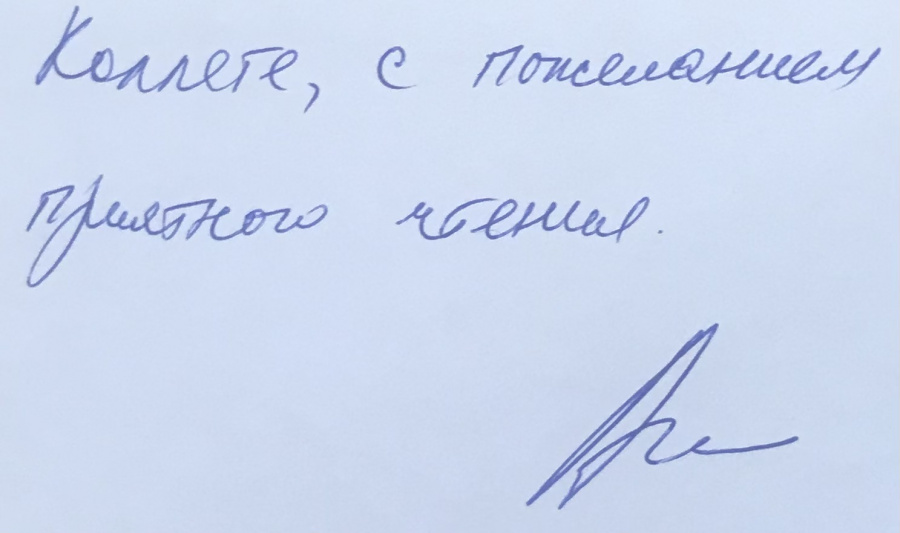 Коллете, с пожеланием
приятного чтения.